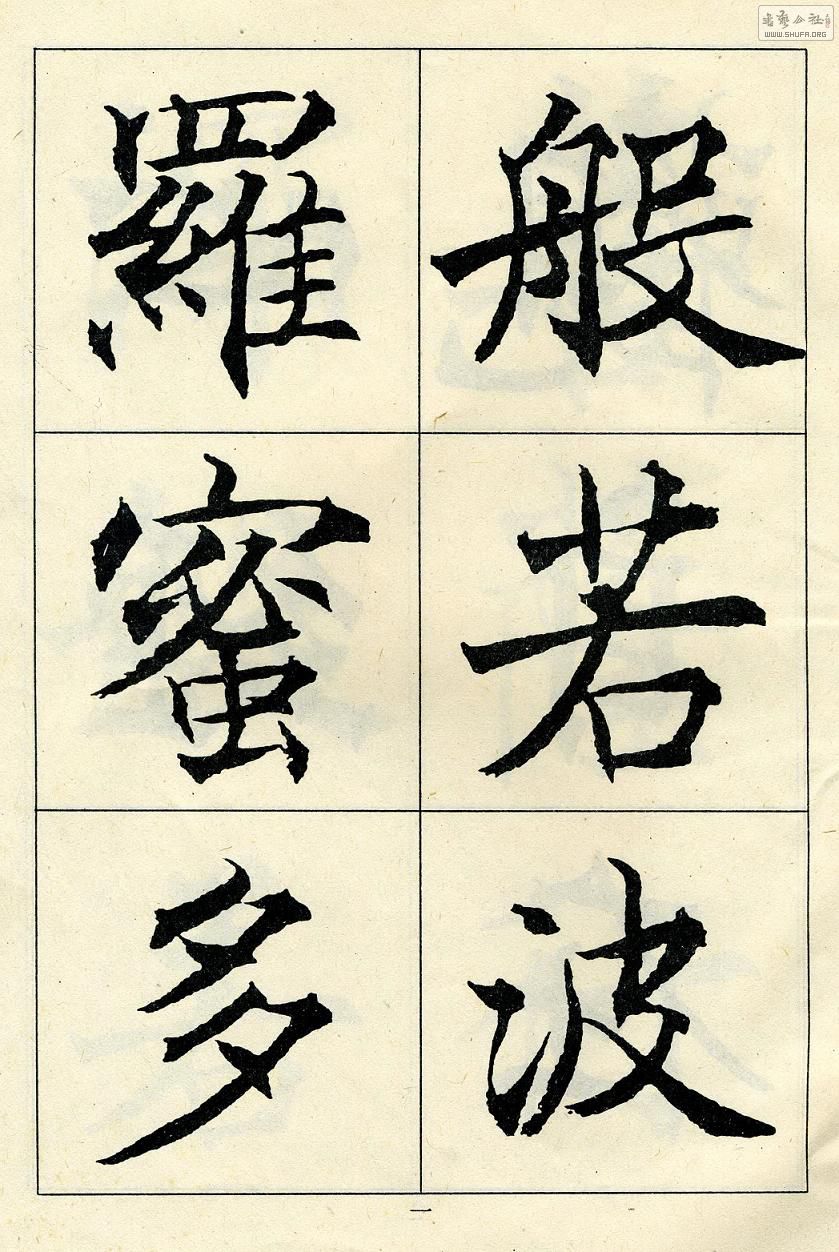 般若波
羅蜜多
一
書藝公社
WWW.SHUFA.ORG